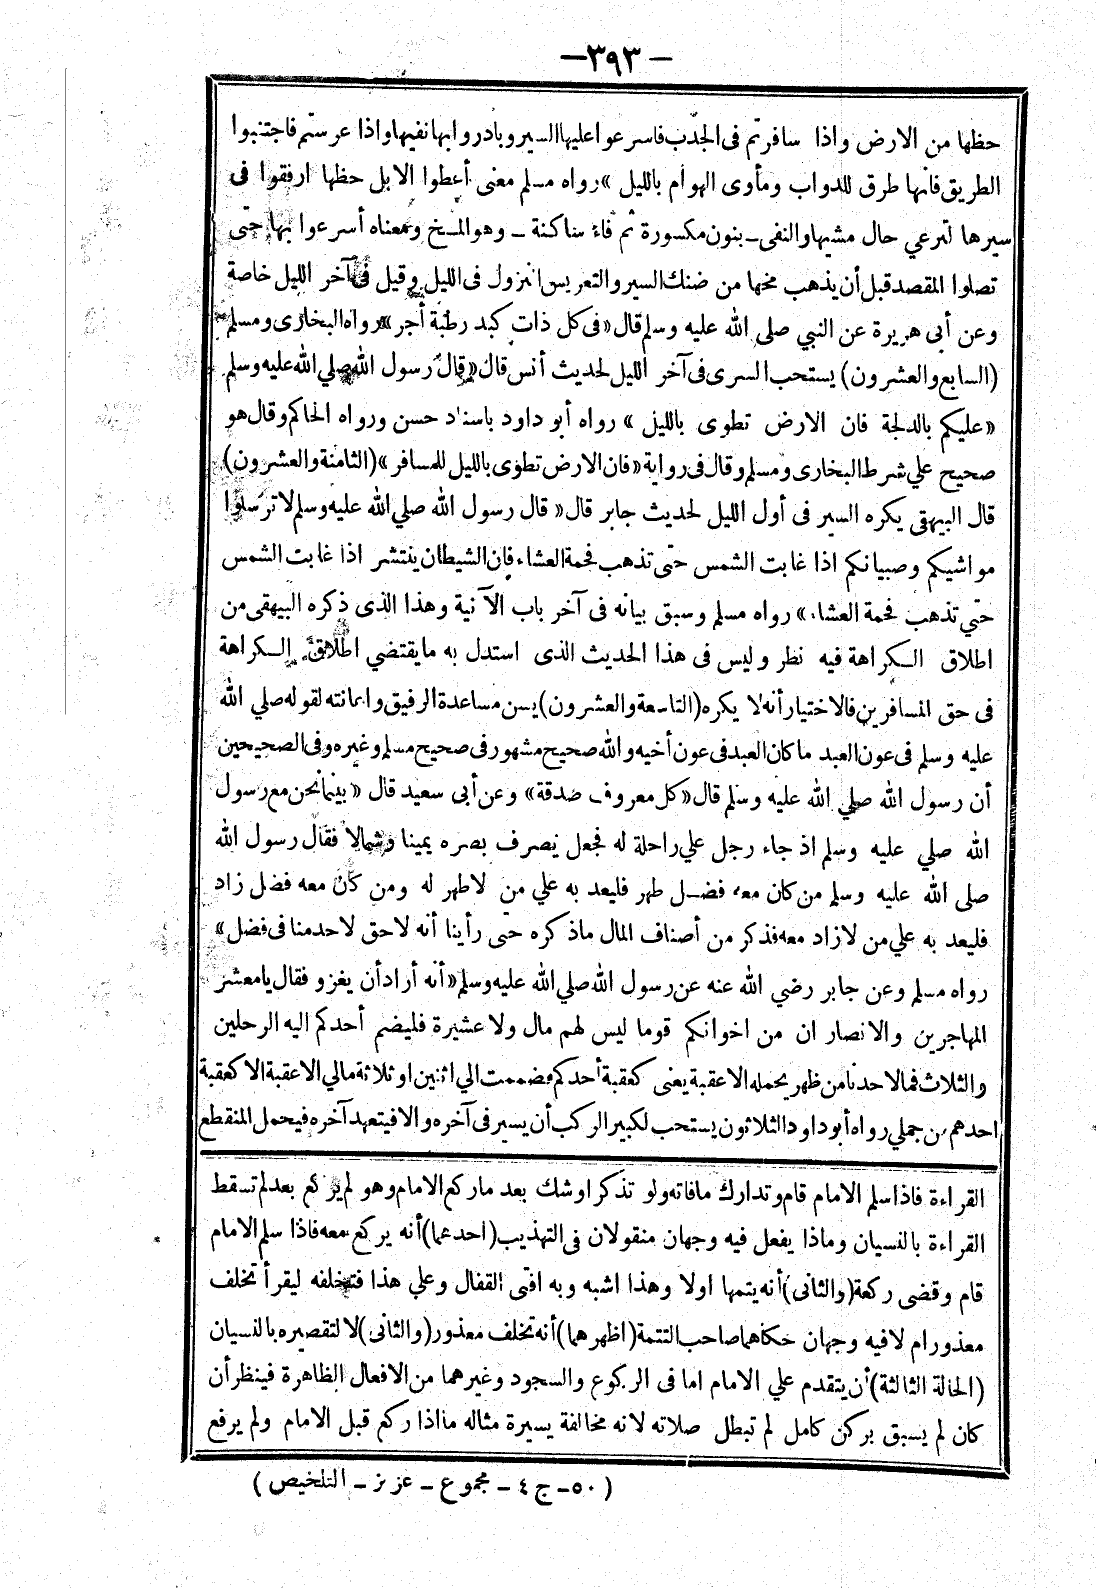 —٣٩٣—
حظها من الارض واذا سافرتم فى الجدب فاسرعوا عليها السير وبادروا بها نقيها واذا عرستم فاجتنبوا
الطريق فانها طرق للدواب ومأوى الهوام بالليل » رواه مسلم معنى أعطوا الابل حظها ارفقوا فى
سيرها لترعي حال مشيها والنقى ـ بنون مكسورة ثم قاف ساكنة ـ وهو المخ ومعناه أسرعوا بها حتى
تصلوا المقصد قبل أن يذهب مخها من ضنك السير والتعريس النزول فى الليل وقيل فى آخر الليل خاصة
وعن أبى هريرة عن النبي صلى الله عليه وسلم قال « فى كل ذات كبد رطبة أجر » رواه البخارى ومسلم
(السابع والعشرون) يستحب السرى فى آخر الليل لحديث أنس قال « قال رسول الله صلي الله عليه وسلم
« عليكم بالدلجة فان الارض تطوى بالليل » رواه أبو داود باسناد حسن ورواه الحاكم وقال هو
صحيح علي شرط البخارى ومسلم وقال فى رواية « فان الارض تطوى بالليل للمسافر » (الثامنة والعشرون)
قال البيهقى يكره السير فى أول الليل لحديث جابر قال « قال رسول الله صلي الله عليه وسلم لا ترسلوا
مواشيكم وصبيانكم اذا غابت الشمس حتى تذهب فحمة العشاء فان الشيطان ينتشر اذا غابت الشمس
حتي تذهب فحمة العشاء » رواه مسلم وسبق بيانه فى آخر باب الآنية وهذا الذى ذكره البيهقى من
اطلاق الكراهة فيه نظر وليس فى هذا الحديث الذى استدل به ما يقتضي اطلاق الكراهة
فى حق المسافرين فالاختيار أنه لا يكره (التاسعة والعشرون) يسن مساعدة الرفيق واعانته لقوله صلي الله
عليه وسلم فى عون العبد ما كان العبد فى عون أخيه والله صحيح مشهور فى صحيح مسلم وغيره وفى الصحيحين
أن رسول الله صلي الله عليه وسلم قال « كل معروف صدقة » وعن أبى سعيد قال « بينما نحن مع رسول
الله صلي عليه وسلم اذ جاء رجل علي راحلة له فجعل يصرف بصره يمينا وشمالا فقال رسول الله
صلى الله عليه وسلم من كان معه فضل ظهر فليعد به علي من لا ظهر له ومن كان معه فضل زاد
فليعد به علي من لا زاد معه فذكر من أصناف المال ماذكره حتى رأينا أنه لاحق لاحد منا فى فضل »
رواه مسلم وعن جابر رضي الله عنه عن رسول الله صلي الله عليه وسلم « أنه أراد أن يغزو فقال يا معشر
المهاجرين والانصار ان من اخوانكم قوما ليس لهم مال ولا عشيرة فليضم أحدكم اليه الرجلين
والثلاث فما لاحدنا من ظهر يحمله الا عقبة يعنى كعقبة أحدكم فضممت الي اثنين او ثلاثة مالي الا عقبة الا كعقبة
احدهم من جملي رواه أبو داود الثلاثون يستحب لكبير الركب أن يسير فى آخره والا فيتعهد آخره فيحمل المنقطع
القراءة فاذا سلم الامام قام وتدارك ما فاته ولو تذكر او شك بعد ما ركع الامام وهو لم يركع بعد لم تسقط
القراءة بالنسيان وماذا يفعل فيه وجهان منقولان فى التهذيب (احدهما) أنه يركع معه فاذا سلم الامام
قام وقضى ركعة (والثانى) أنه يتمها اولا وهذا اشبه وبه افتى القفال وعلي هذا فتخلفه ليقرأ تخلف
معذور ام لا فيه وجهان حكاهما صاحب التتمة (اظهرهما) أنه تخلف معذور (والثانى) لا لتقصيره بالنسيان
(الحالة الثالثة) أن يتقدم علي الامام اما فى الركوع والسجود وغيرهما من الافعال الظاهرة فينظر أن
كان لم يسبق بركن كامل لم تبطل صلاته لانه مخالفة يسيرة مثاله ما اذا ركع قبل الامام ولم يرفع
( ٥٠ ـ ج ٤ ـ مجموع ـ عزيز ـ التلخيص )